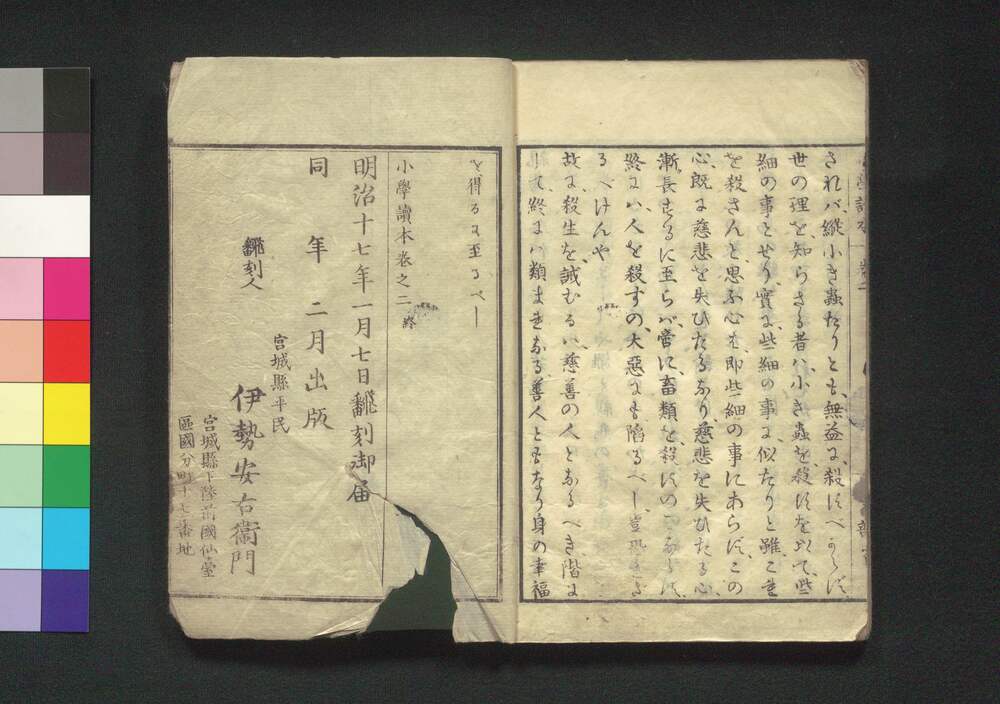 されバ、縦小き蟲たりとも、無益に、殺すべからず、
世の理を知らざる者ハ、小き蟲を、殺すを以て、些
細の事とせり、實に、些細の事に、似たりと雖、こを
を殺さんと、思ふ心ハ、即些細の事にあらず、この
心、既に慈悲を失ひたるなり、慈悲を失ひたる心、
漸長ずるに至らバ、啻に、畜類を殺すのみならず、
終にハ、人を殺すの、大惡にも陷るべし、豈恐れざ
るべけんや、
故に、殺生を誡むるハ、慈善の人となるべき階に
して、終にハ類まれなる善人ともなり、身の幸福
を得るに至るべし
小學讀本卷之二 終
明治十七年一月七日飜刻御届
同 年 二月出版
宮城縣平民
飜刻人 伊勢安右衞門
宮城縣下陸前國仙臺
區國分町十七番地